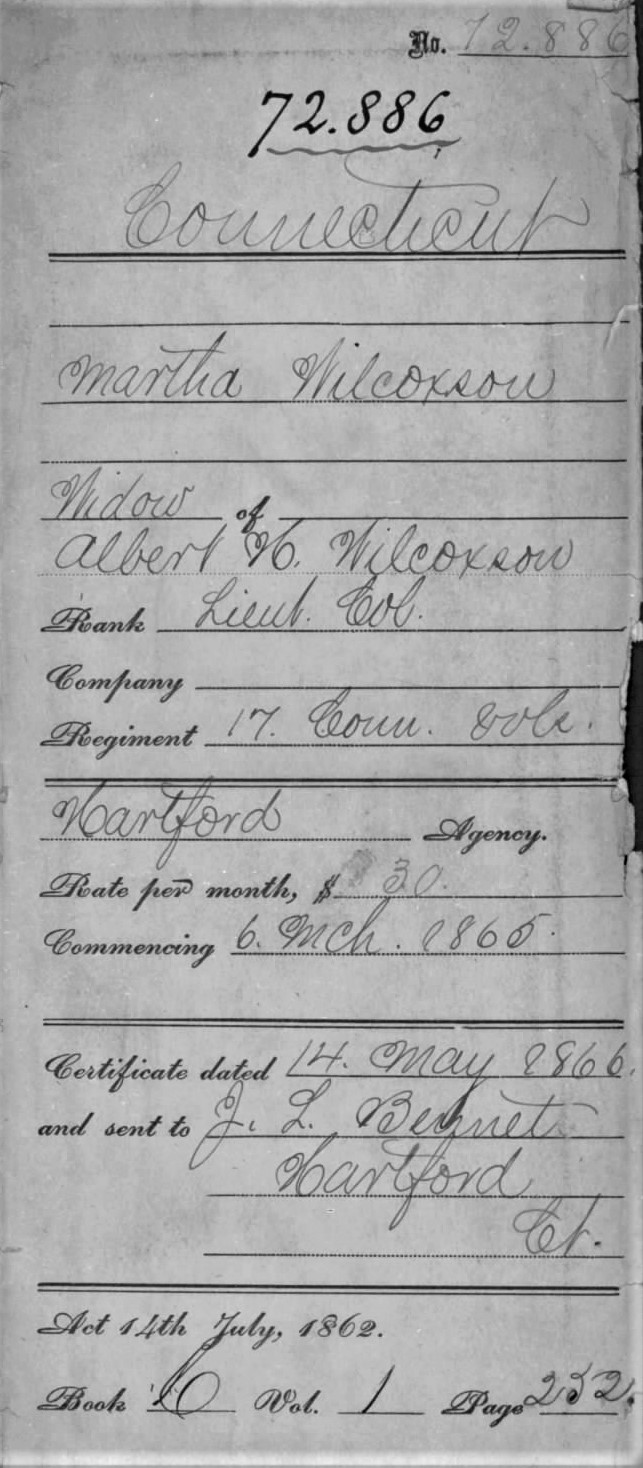 No. 72.886
72.886
Connecticut
Martha Wilcoxson
Widow of
Albert H. Wilcoxson
Rank Lieut. Col.
Company
Regiment 17. Conn. Vols.
Hartford Agency.
Rate per month, $ 30.
Commencing 6. Mch. 1865.
Certificate dated 14. May 1866.
and sent to J. L. Bennet
Hartford
Ct.
Act 14th July, 1862.
Book Vol. 1 Page 232.